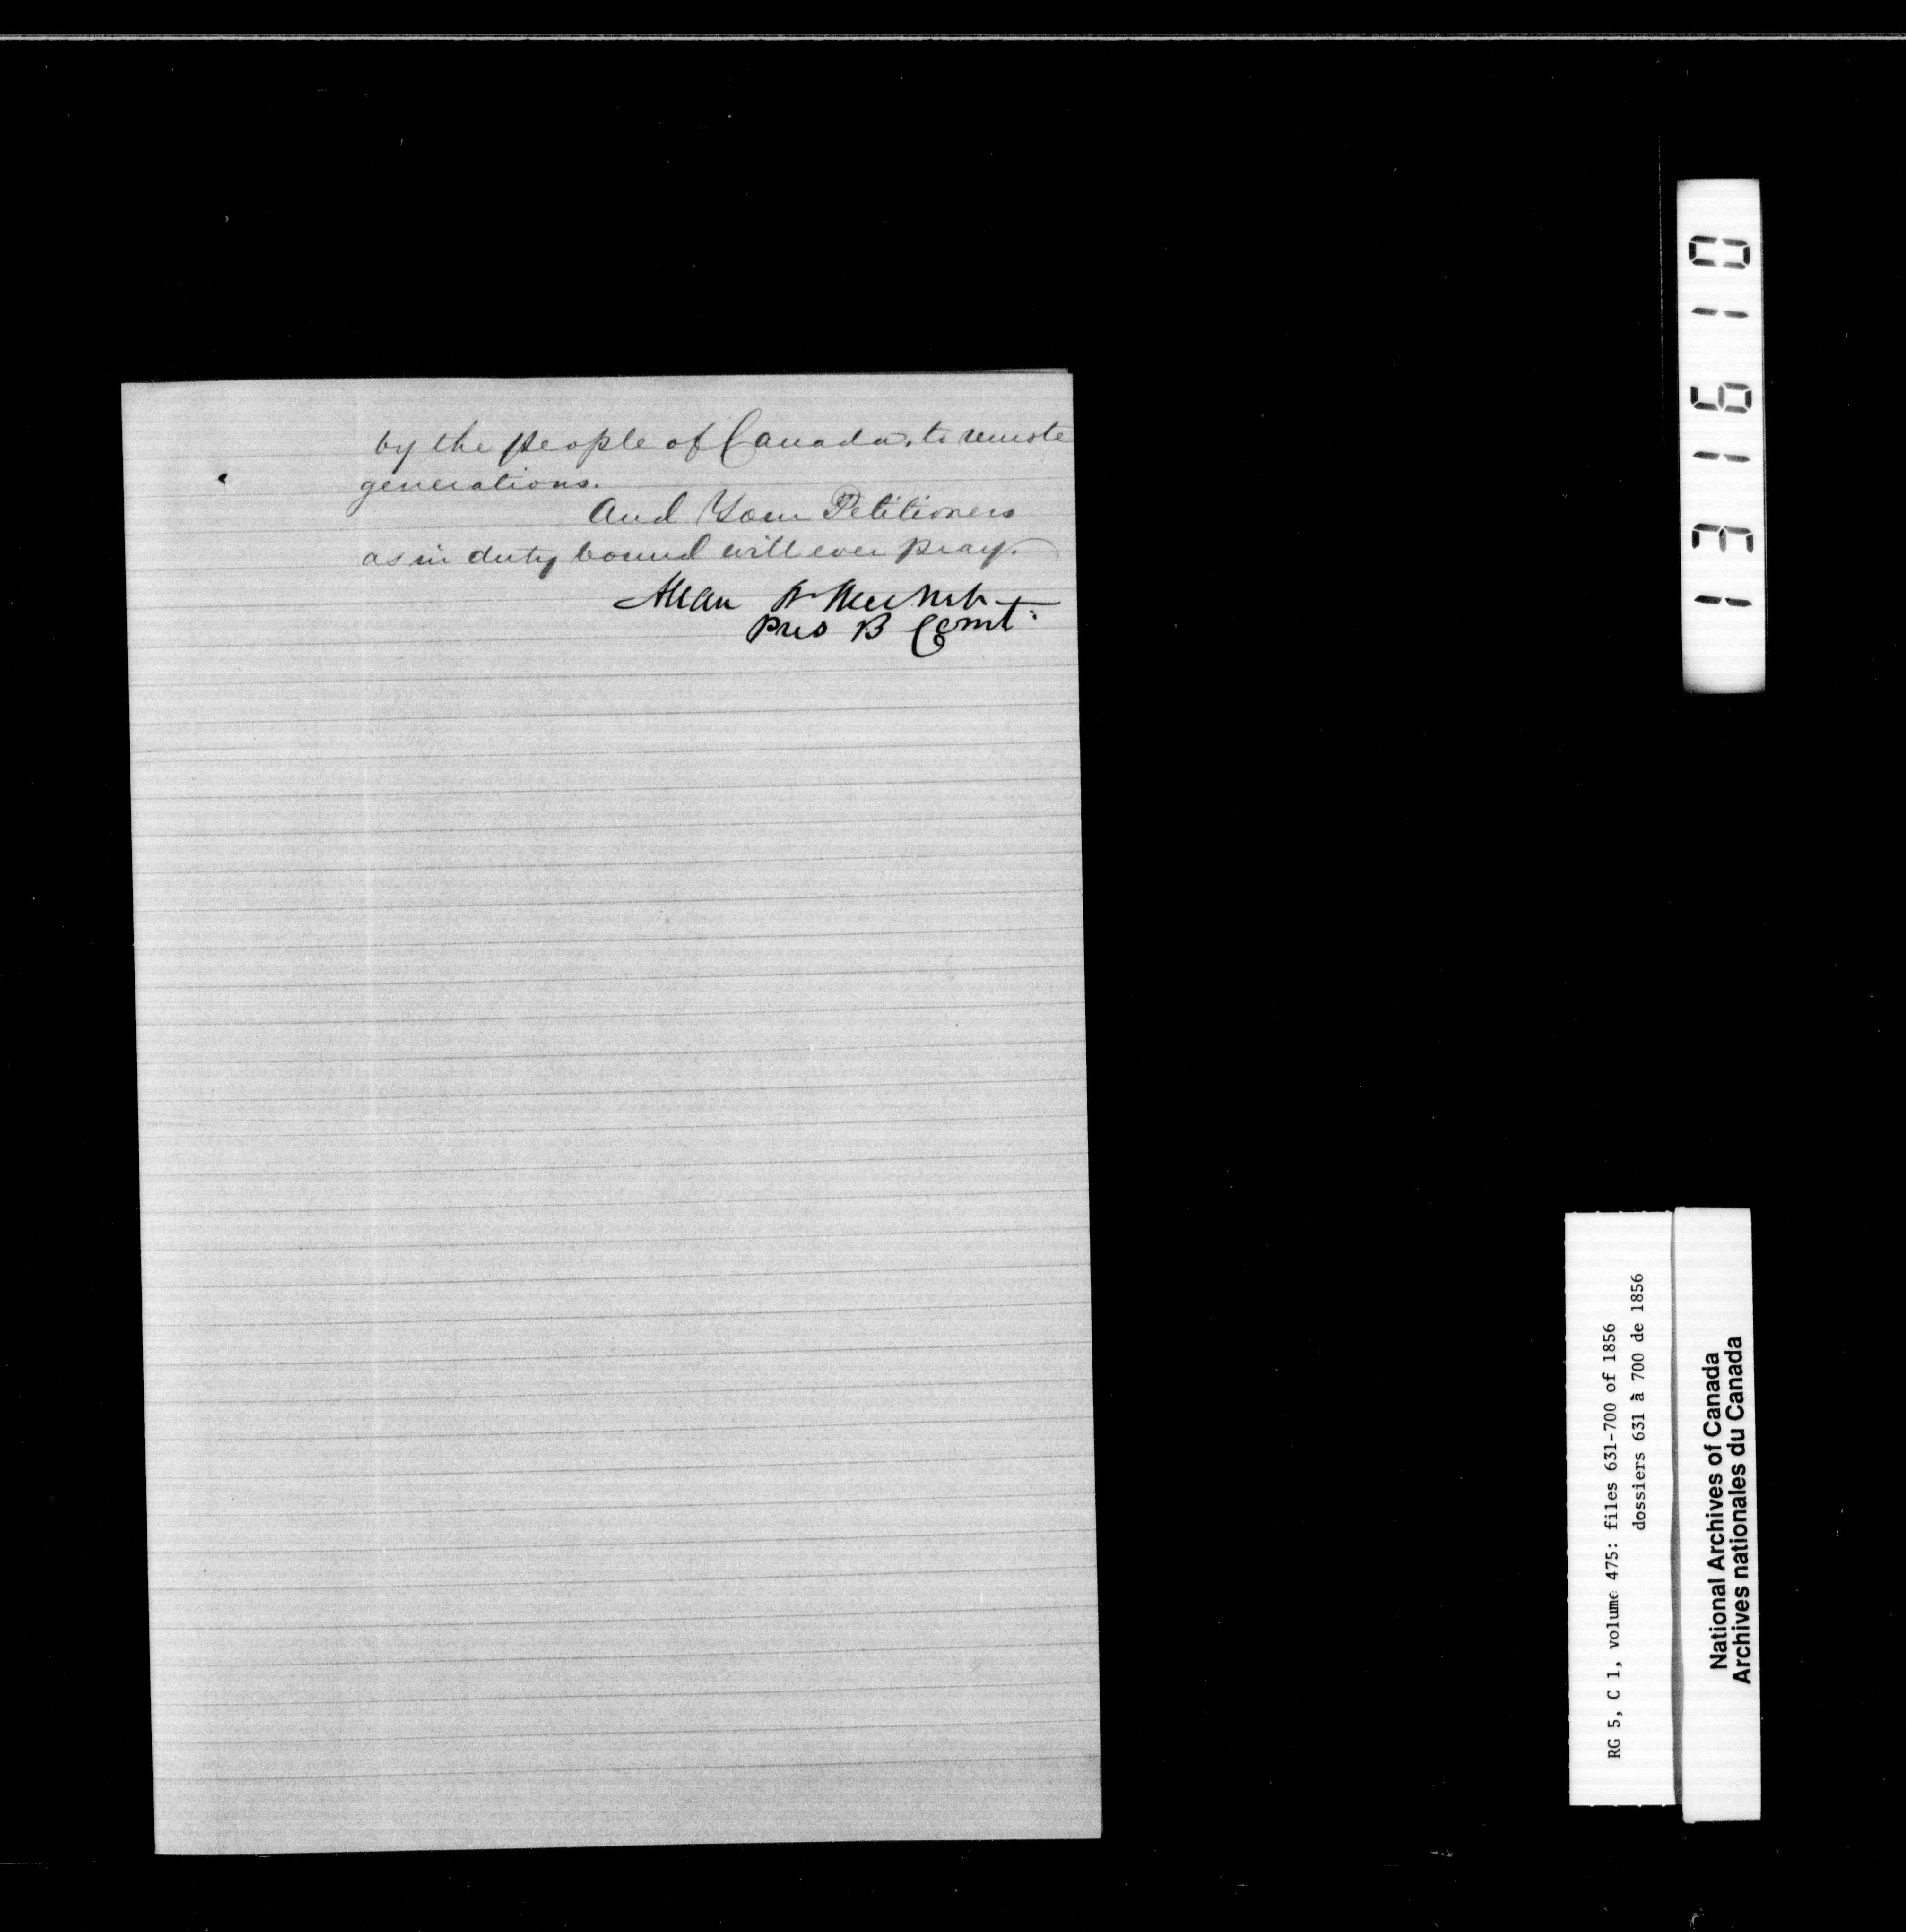 by the people of Canada, to remote
generations.
And Your Petitioners
as in duty bound will ever pray.
Allan
Pres B Comt:
131610
RG 5, C 1, volume 475: files 631-700 of 1856
dossiers 631 à 700 de 1856
National Archives of Canada
Archives nationales du Canada